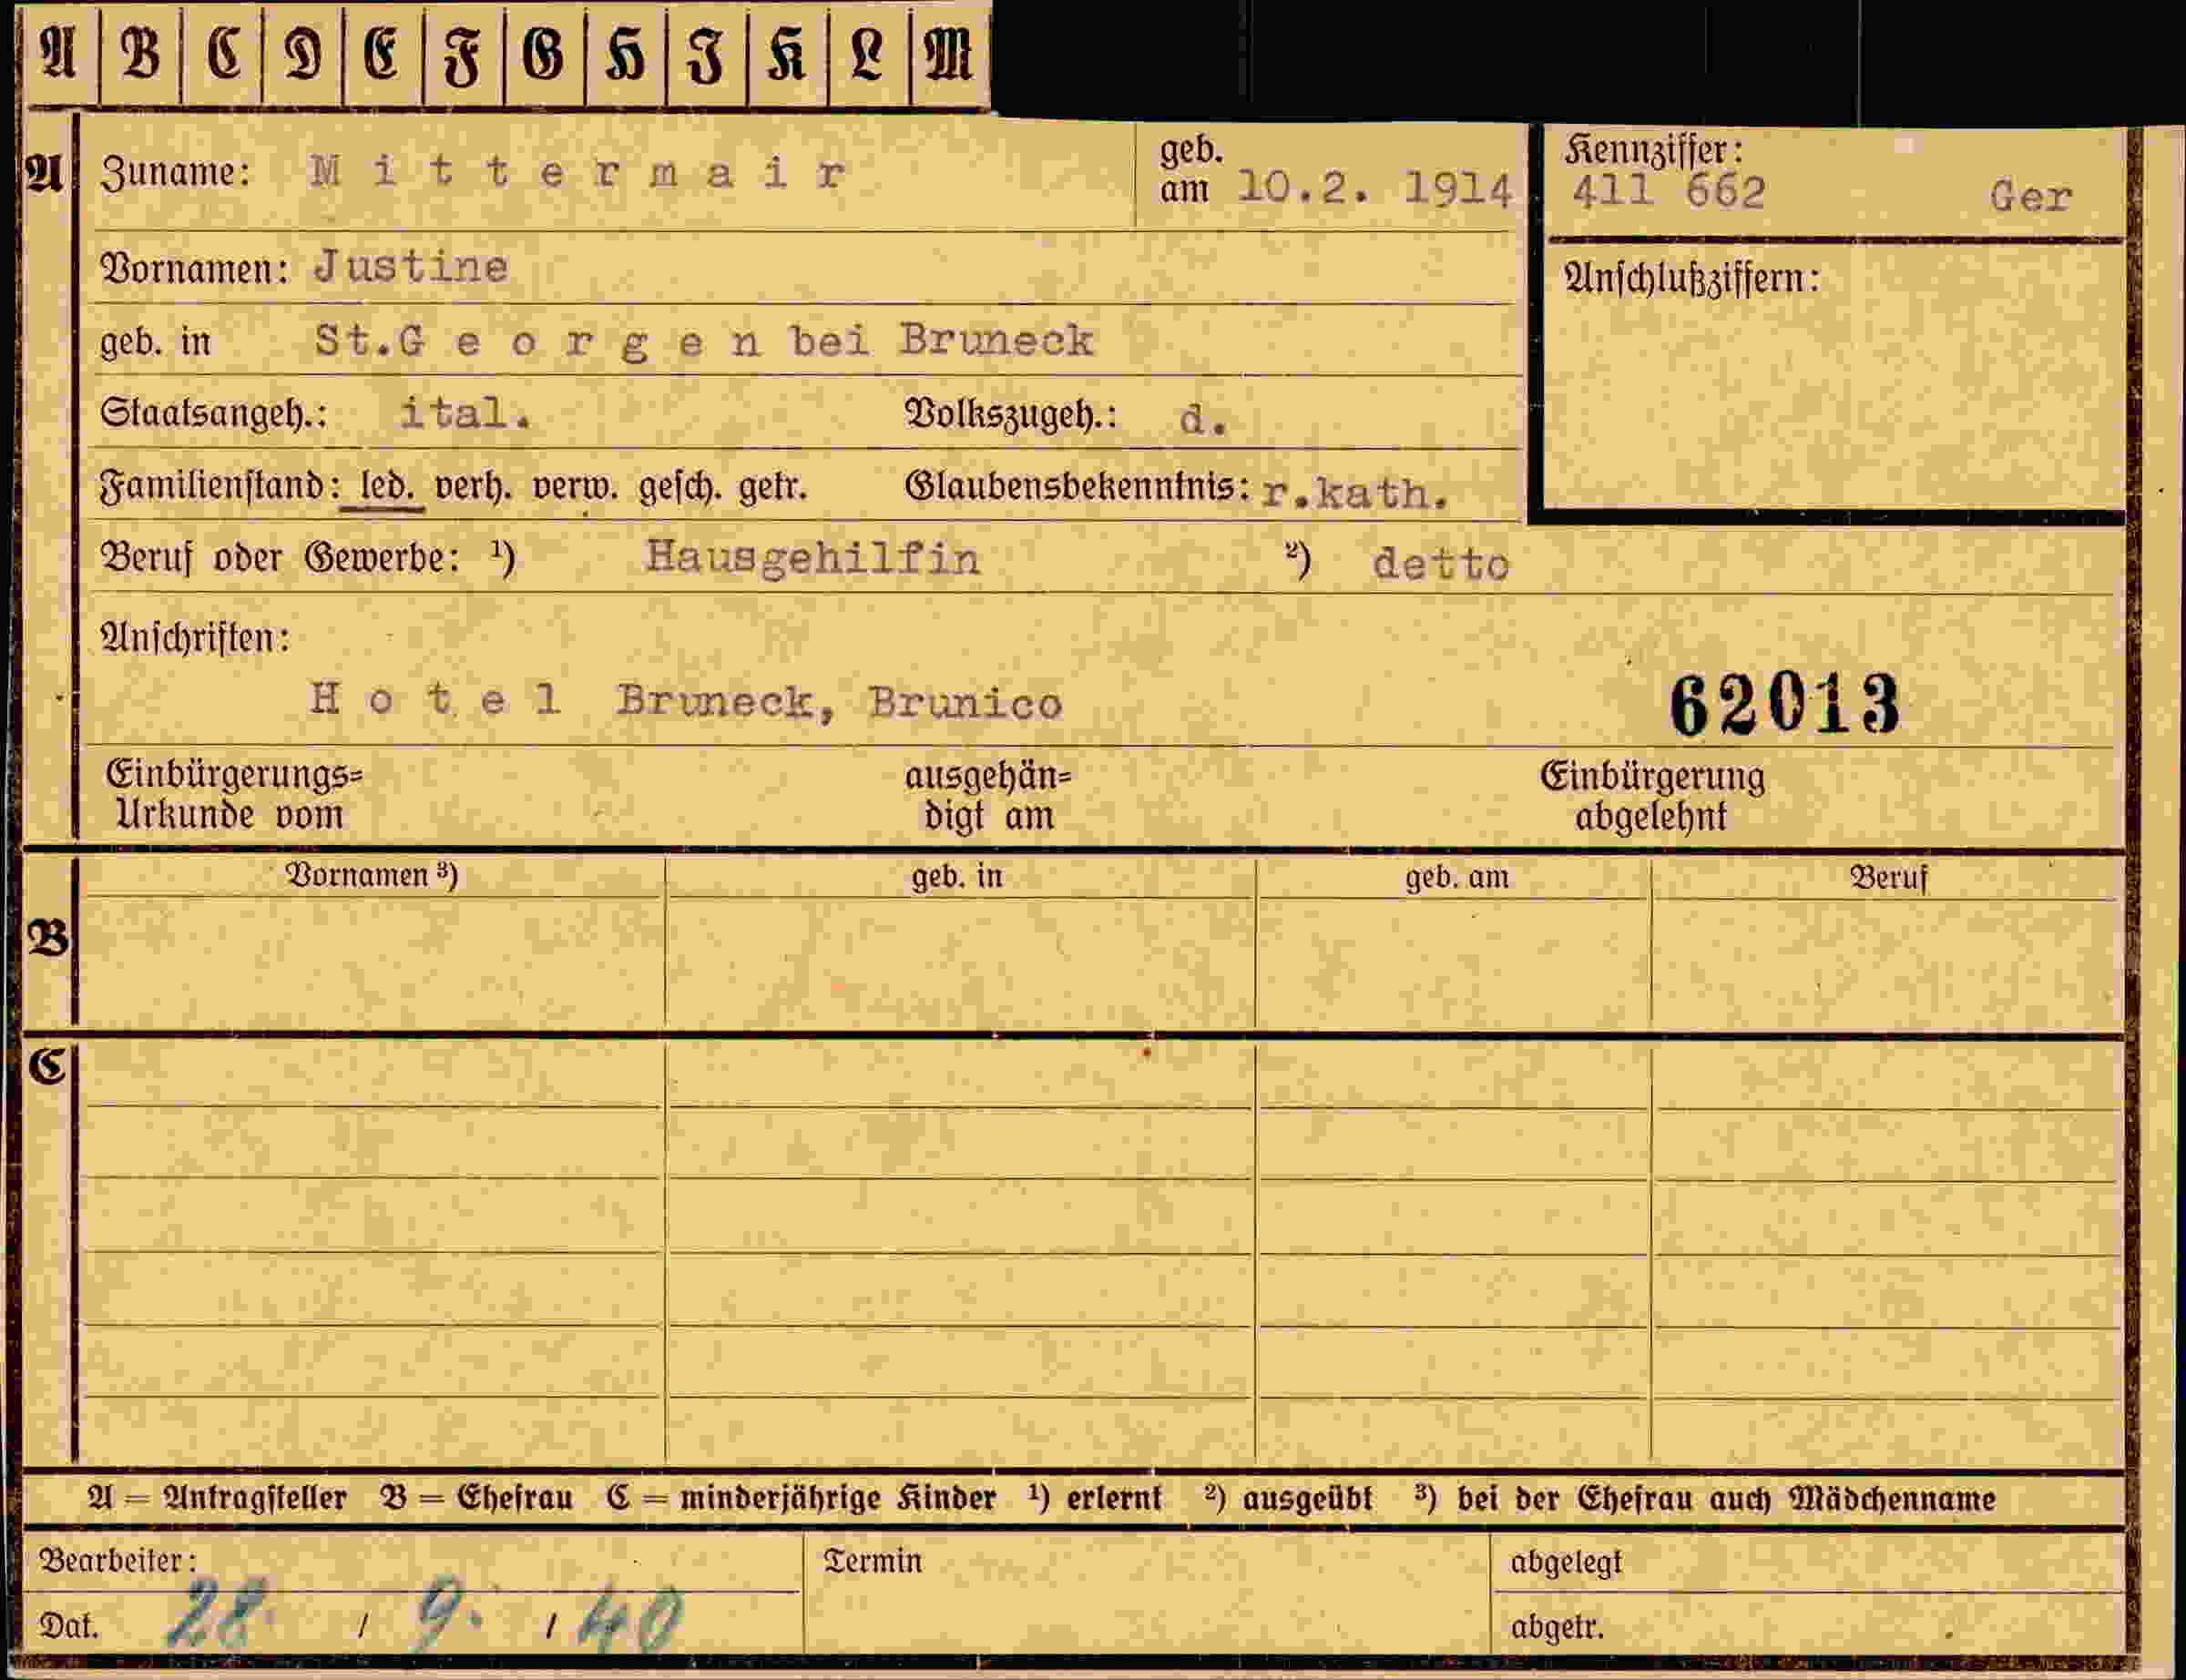 A B C D E F G H J K L M
A Zuname: Mittermair geb. am 10.2. 1914 Kennziffer: 411 662 Ger
Vornamen: Justine Anschlußziffern:
geb. in St.Georgen bei Bruneck
Staatsangeh.: ital. Volkszugeh.: d.
Familienstand: led. verh. verw. gesch. getr. Glaubensbekenntnis: r.kath.
Beruf oder Gewerbe: ¹) Hausgehilfin ²) detto
Anschriften:
Hotel Bruneck, Brunico 62013
Einbürgerungs= ausgehän= Einbürgerung
Urkunde vom digt am abgelehnt
Vornamen ³) geb. in geb. am Beruf
B
C
A = Antragsteller B = Ehefrau C = minderjährige Kinder ¹) erlernt ²) ausgeübt ³) bei der Ehefrau auch Mädchenname
Bearbeiter: Termin abgelegt
Dat. 28. / 9. / 40 abgetr.